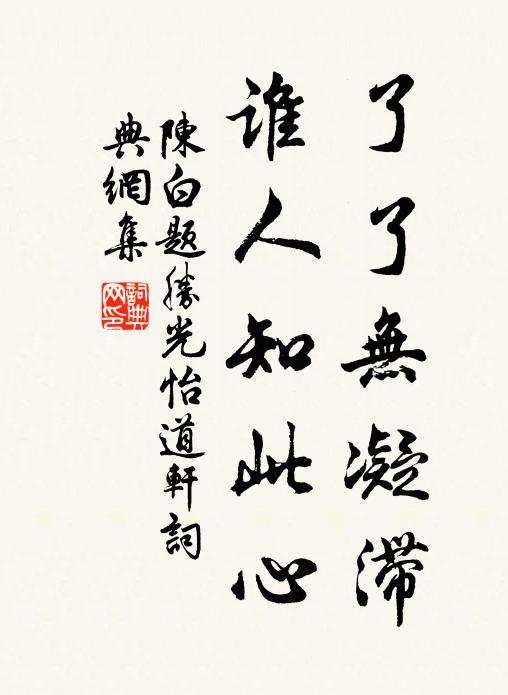 了了無凝滯
誰人知此心
陳白題勝光怡道軒詞
典網集
詞典
网印